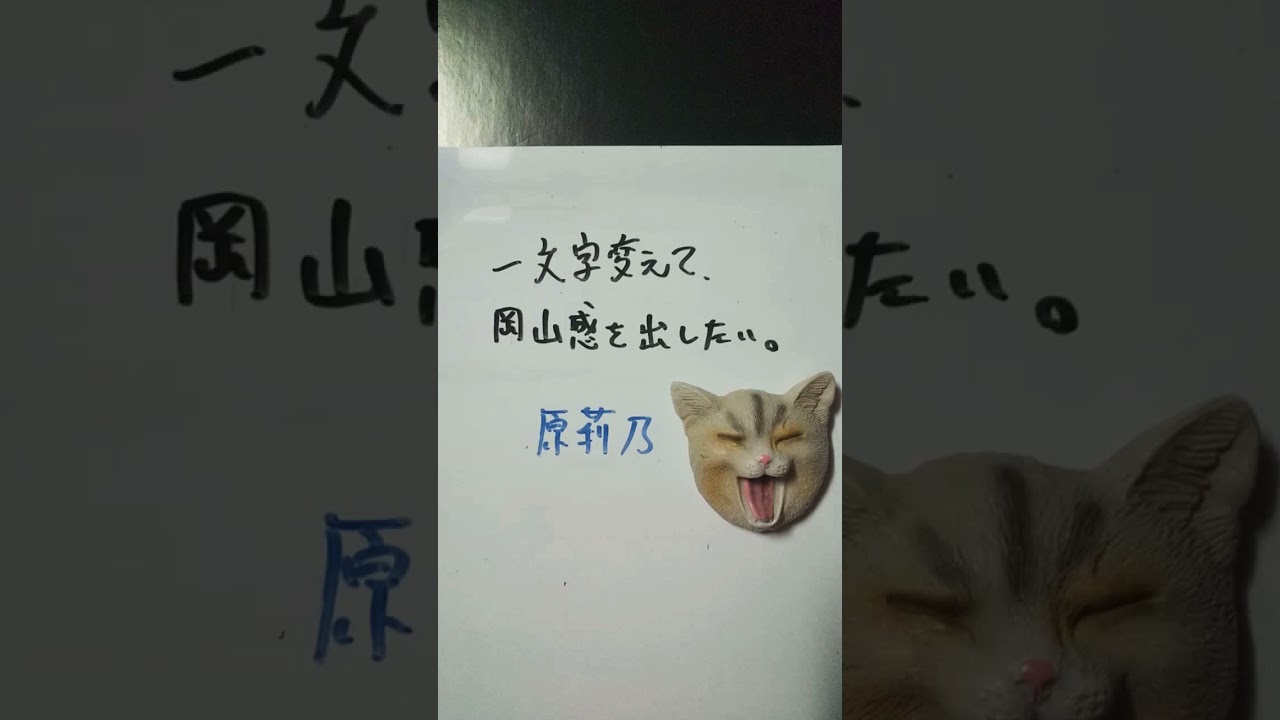 一文字変えて、
岡山感を出したい。
原莉乃